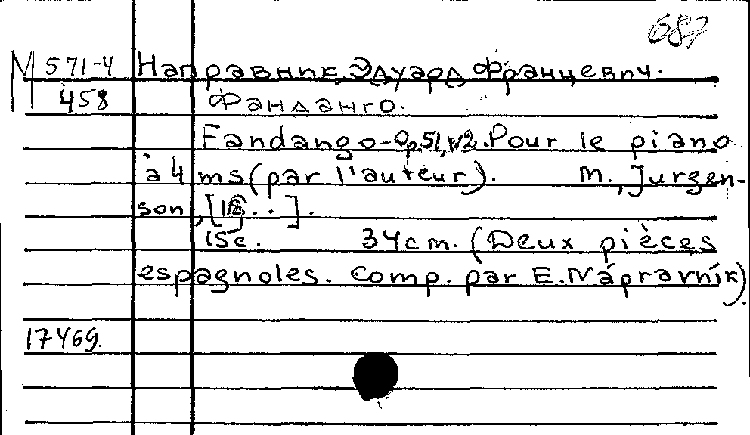 687
М 571-4 Направник, Эдуард Францевич.
458 Фанданго.
Fandango-Op.51, №2. Pour le piano
à 4 ms (par l'auteur). M., Jurgen-
son, [18..].
15c. 34cm. (Deux pièces
espagnoles. Comp. par E. Nápravník)
17469.